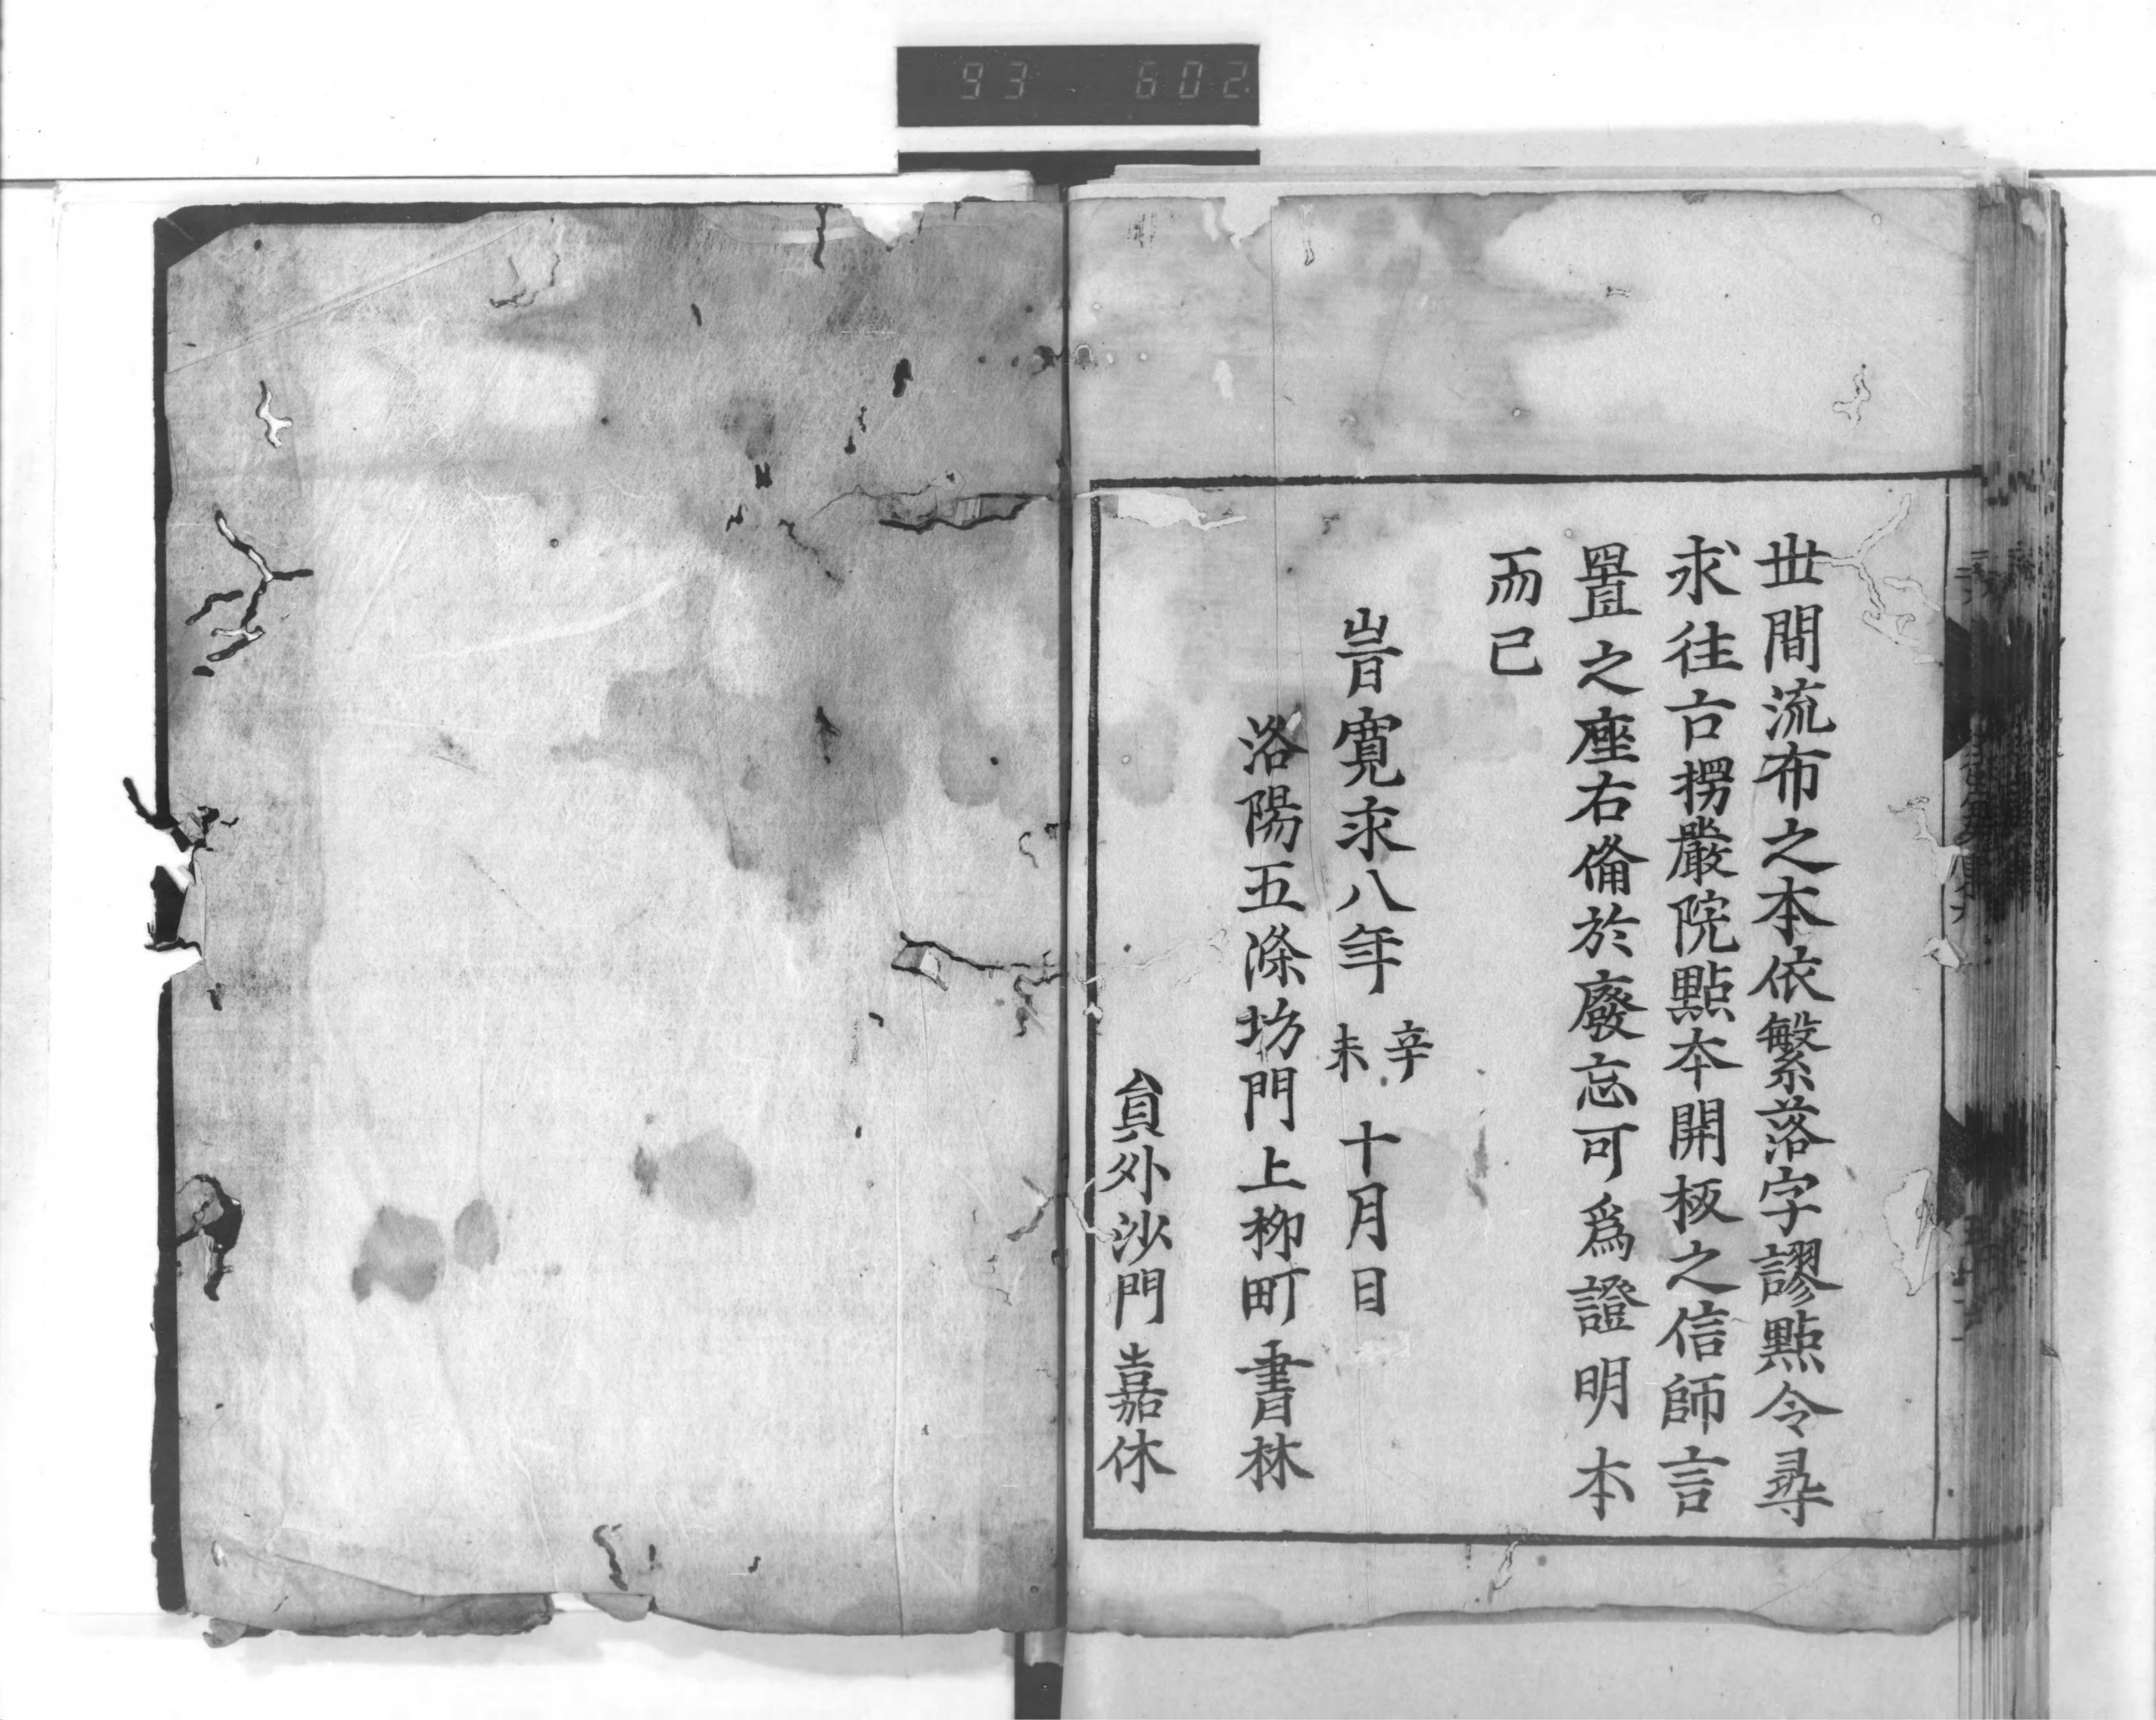 93 602
世間流布之本依繁落字謬點令尋
求往古楞嚴院點本開板之信師言
置之座右備於廢忘可爲證明本
而已
旹寛永八年辛未十月日
洛陽五條坊門上柳町書林
員外沙門嘉休